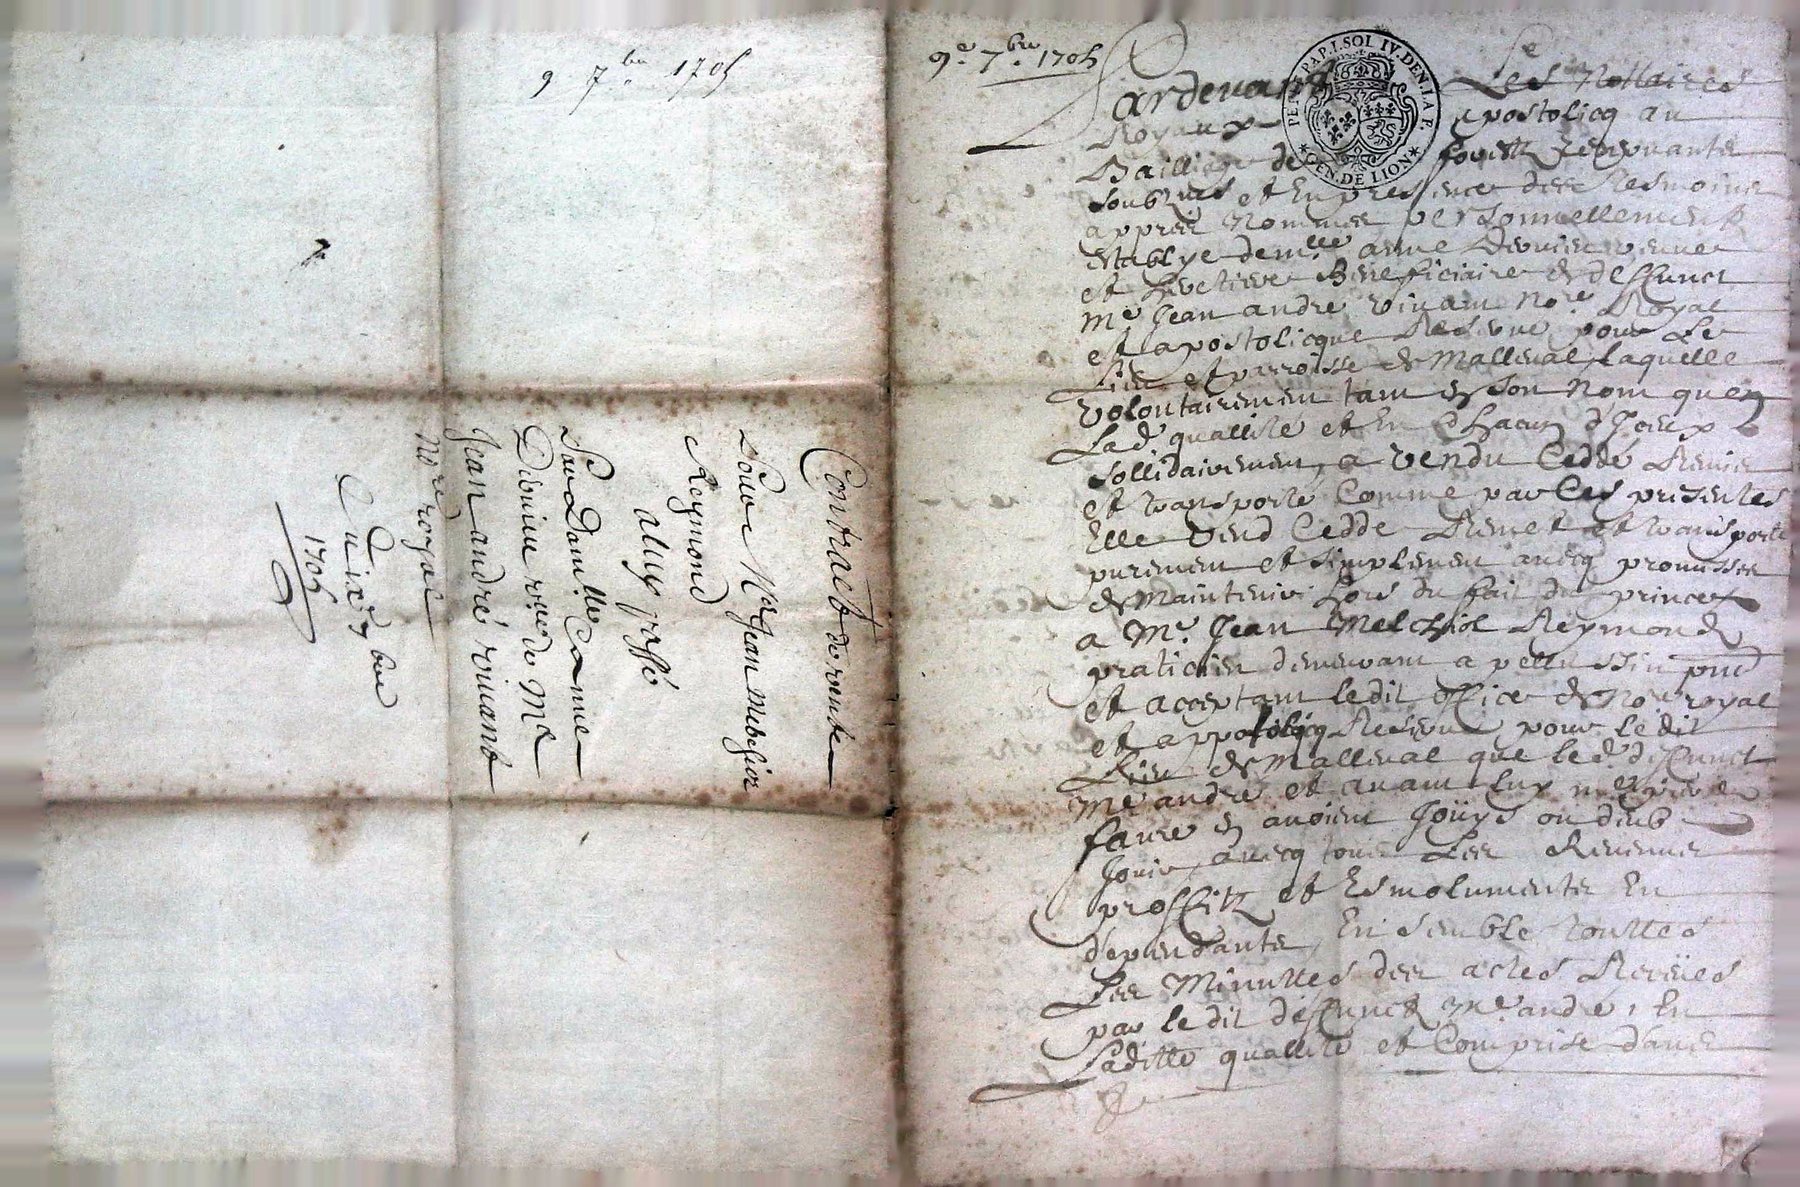 9 7bre 1705
Contract de vente
Pour Me Jean Melchior
Reymond
alugo passé
Par Damlle anne
Duvieu vve de Me
Jean andré vivant
Nore royal
Du ix 7bre
1705
9e 7bre 1705
Pardevant Les Nottaires
Royaux apostolicq au
Bailliage de forestz
soubznes et En presence des tesmoins
appres Nommes personnellement
establye demlle anne vefve
et heretiere Beneficiaire de deffunct
Me Jean andre vivant Nore Royal
et apostolicque Reserve pour Le
Lieu et parroisse de Malleval laquelle
volontairement tant en son Nom quen
Lad quallité et En chacun d'Iceux
sollidairement, a vendu Ceddé Remis
et transporté Comme par Ces presentes
Elle vend Cedde Remet et transporte
purement et simplement avecq promesses
de Maintenir hors du fait du prince
a Me Jean Melchiol Reymond
praticien demeurant a pellussin pnt
et acceptant ledit office de Nore royal
et appostolicq Reserve pour ledit
Lieu de Malleval que led deffunct
Me andre et avant luy Me
favre en avoient Joüys ou deub
Jouir, avecq tous Les Revenus
proffitz et Esmolumentz En
dependants, En semble touttes
Les Minuttes des actes Receües
par ledit deffunct Me andre, En
Laditte quallité et Comprise dans
PAP.I.SOL IV.DEN.LA F.
GEN.DE LION